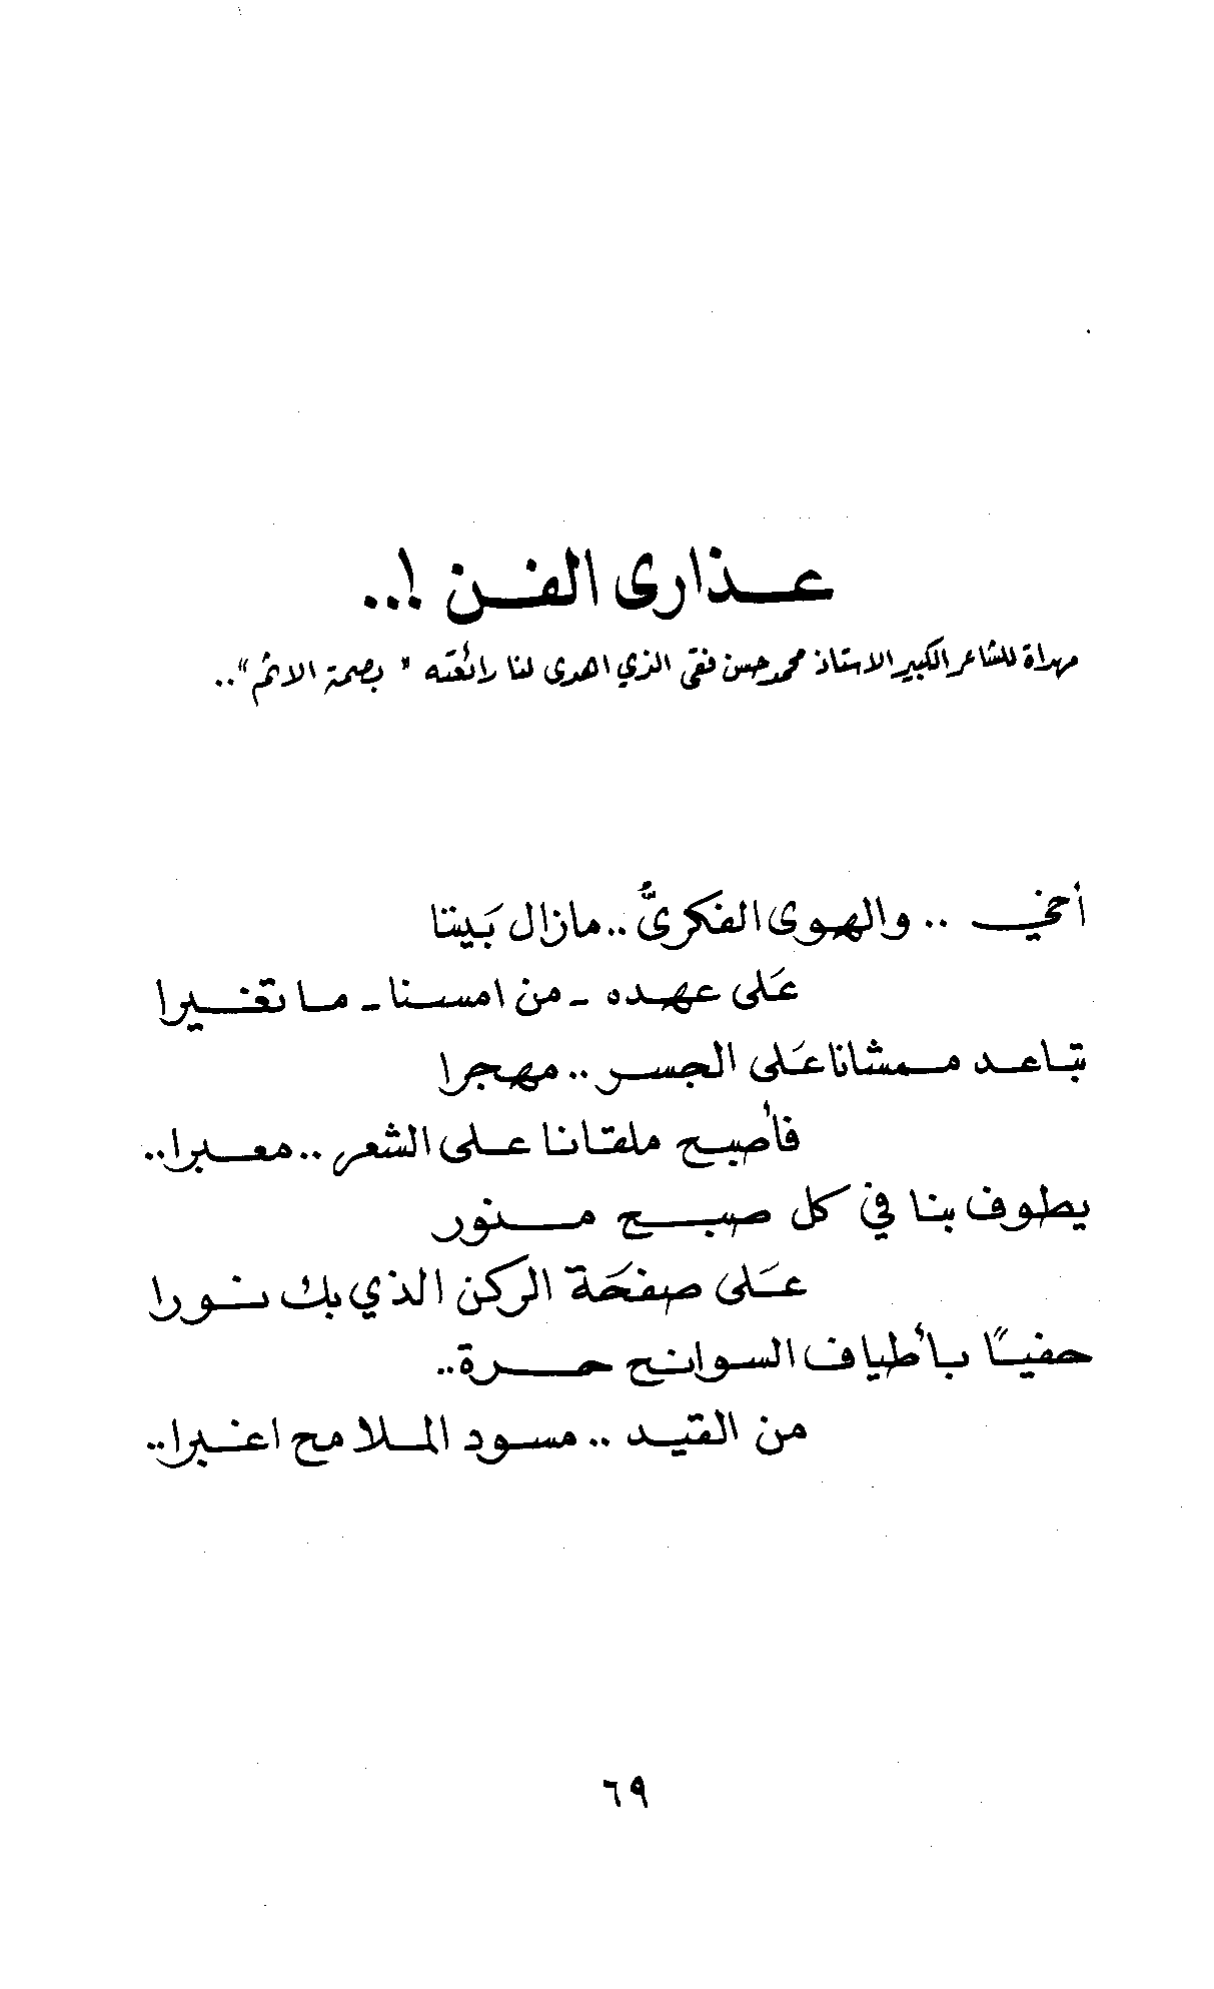 عذارى الفن !..
مهداة للشاعر الكبير الاستاذ محمد حسن فقي الذي اهدى لنا رائعته " بصمة الاثم "..
أخي .. والهوى الفكريُّ .. مازال بَيننا
عَلى عهده - من امسنا - ما تغيرا
تباعد ممشانا عَلى الجسر .. مهجرا
فأصبح ملقانا على الشعر .. معبرا..
يطوف بنا في كل صبح منور
عَلى صفحَة الركن الذي بك نورا
حفيًا بأطياف السوانح حرة..
من القيد .. مسود الملامح اغبرا..
٦٩